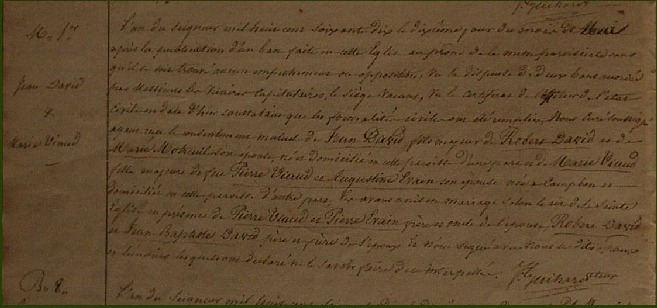 J. Guihard
M. 1er
Jean David
&
Marie Viaud
L'an du seigneur mil huit cent soixante dix le dixième jour du mois de Mai
après la publication d'un ban faite en cette église au prône de la messe paroissiale sans
qu'il se soit trouvé aucun empêchement ou opposition, Vu la dispense de deux bans accordée
par Messieurs les Vicaires Capitulaires, le Siège vacant, Vu le certificat de l'officier de l'état
civil en date d'hier constatant que les formalités civiles ont été remplies, Nous Curé soussigné
avons reçu le consentement mutuel de Jean David fils majeur de Robert David et de
Marie son épouse, né et domicilié en cette paroisse d'une part et de Marie Viaud
fille majeure de feu Pierre Viaud et Augustine Evain son épouse née à Campbon et
domiciliée en cette paroisse d'autre part. Les avons unis en mariage selon le rit de la Sainte
église en présence de Pierre Viaud et Pierre Evain frère et oncle de l'épouse, Robert David
et Jean Baptiste David père et frère de l'époux
J. Guihard recteur
B. 8.
L'an du Seigneur mil huit cent